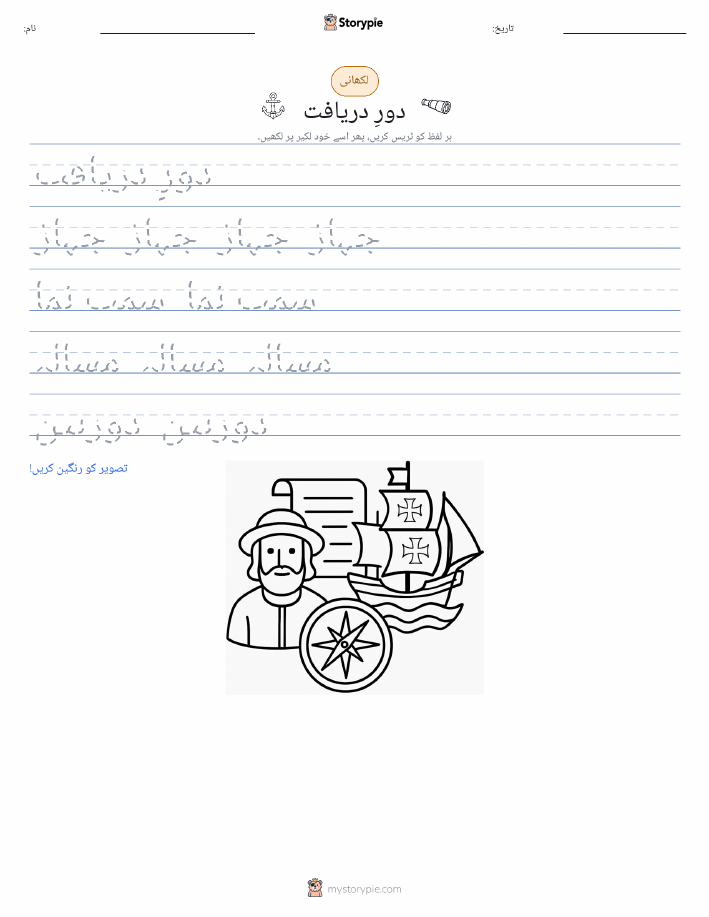 Storypie
نام:
تاریخ:
لکھائی
دورِ دریافت
ہر لفظ کو ٹریس کریں، پھر اسے خود لکیر پر لکھیں۔
دورِ دریافت
جہاز جہاز جہاز جہاز
سمت نما سمت نما
مسالہ مسالہ مسالہ
دوربین دوربین
تصویر کو رنگین کریں!
mystorypie.com